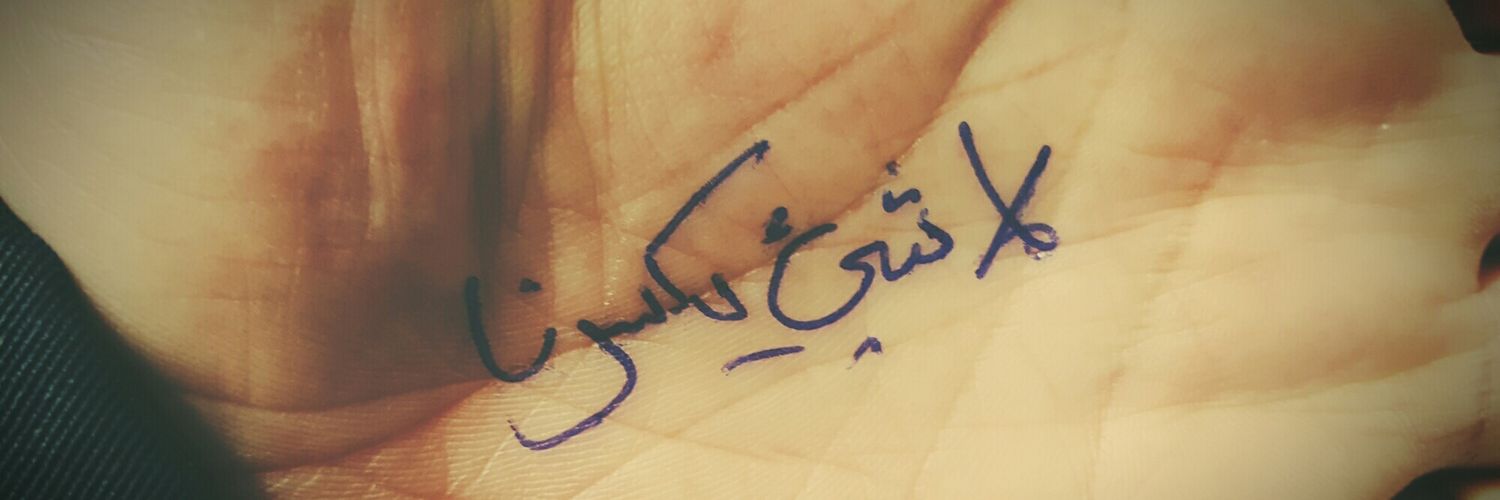 لا شيئ يكسرنا